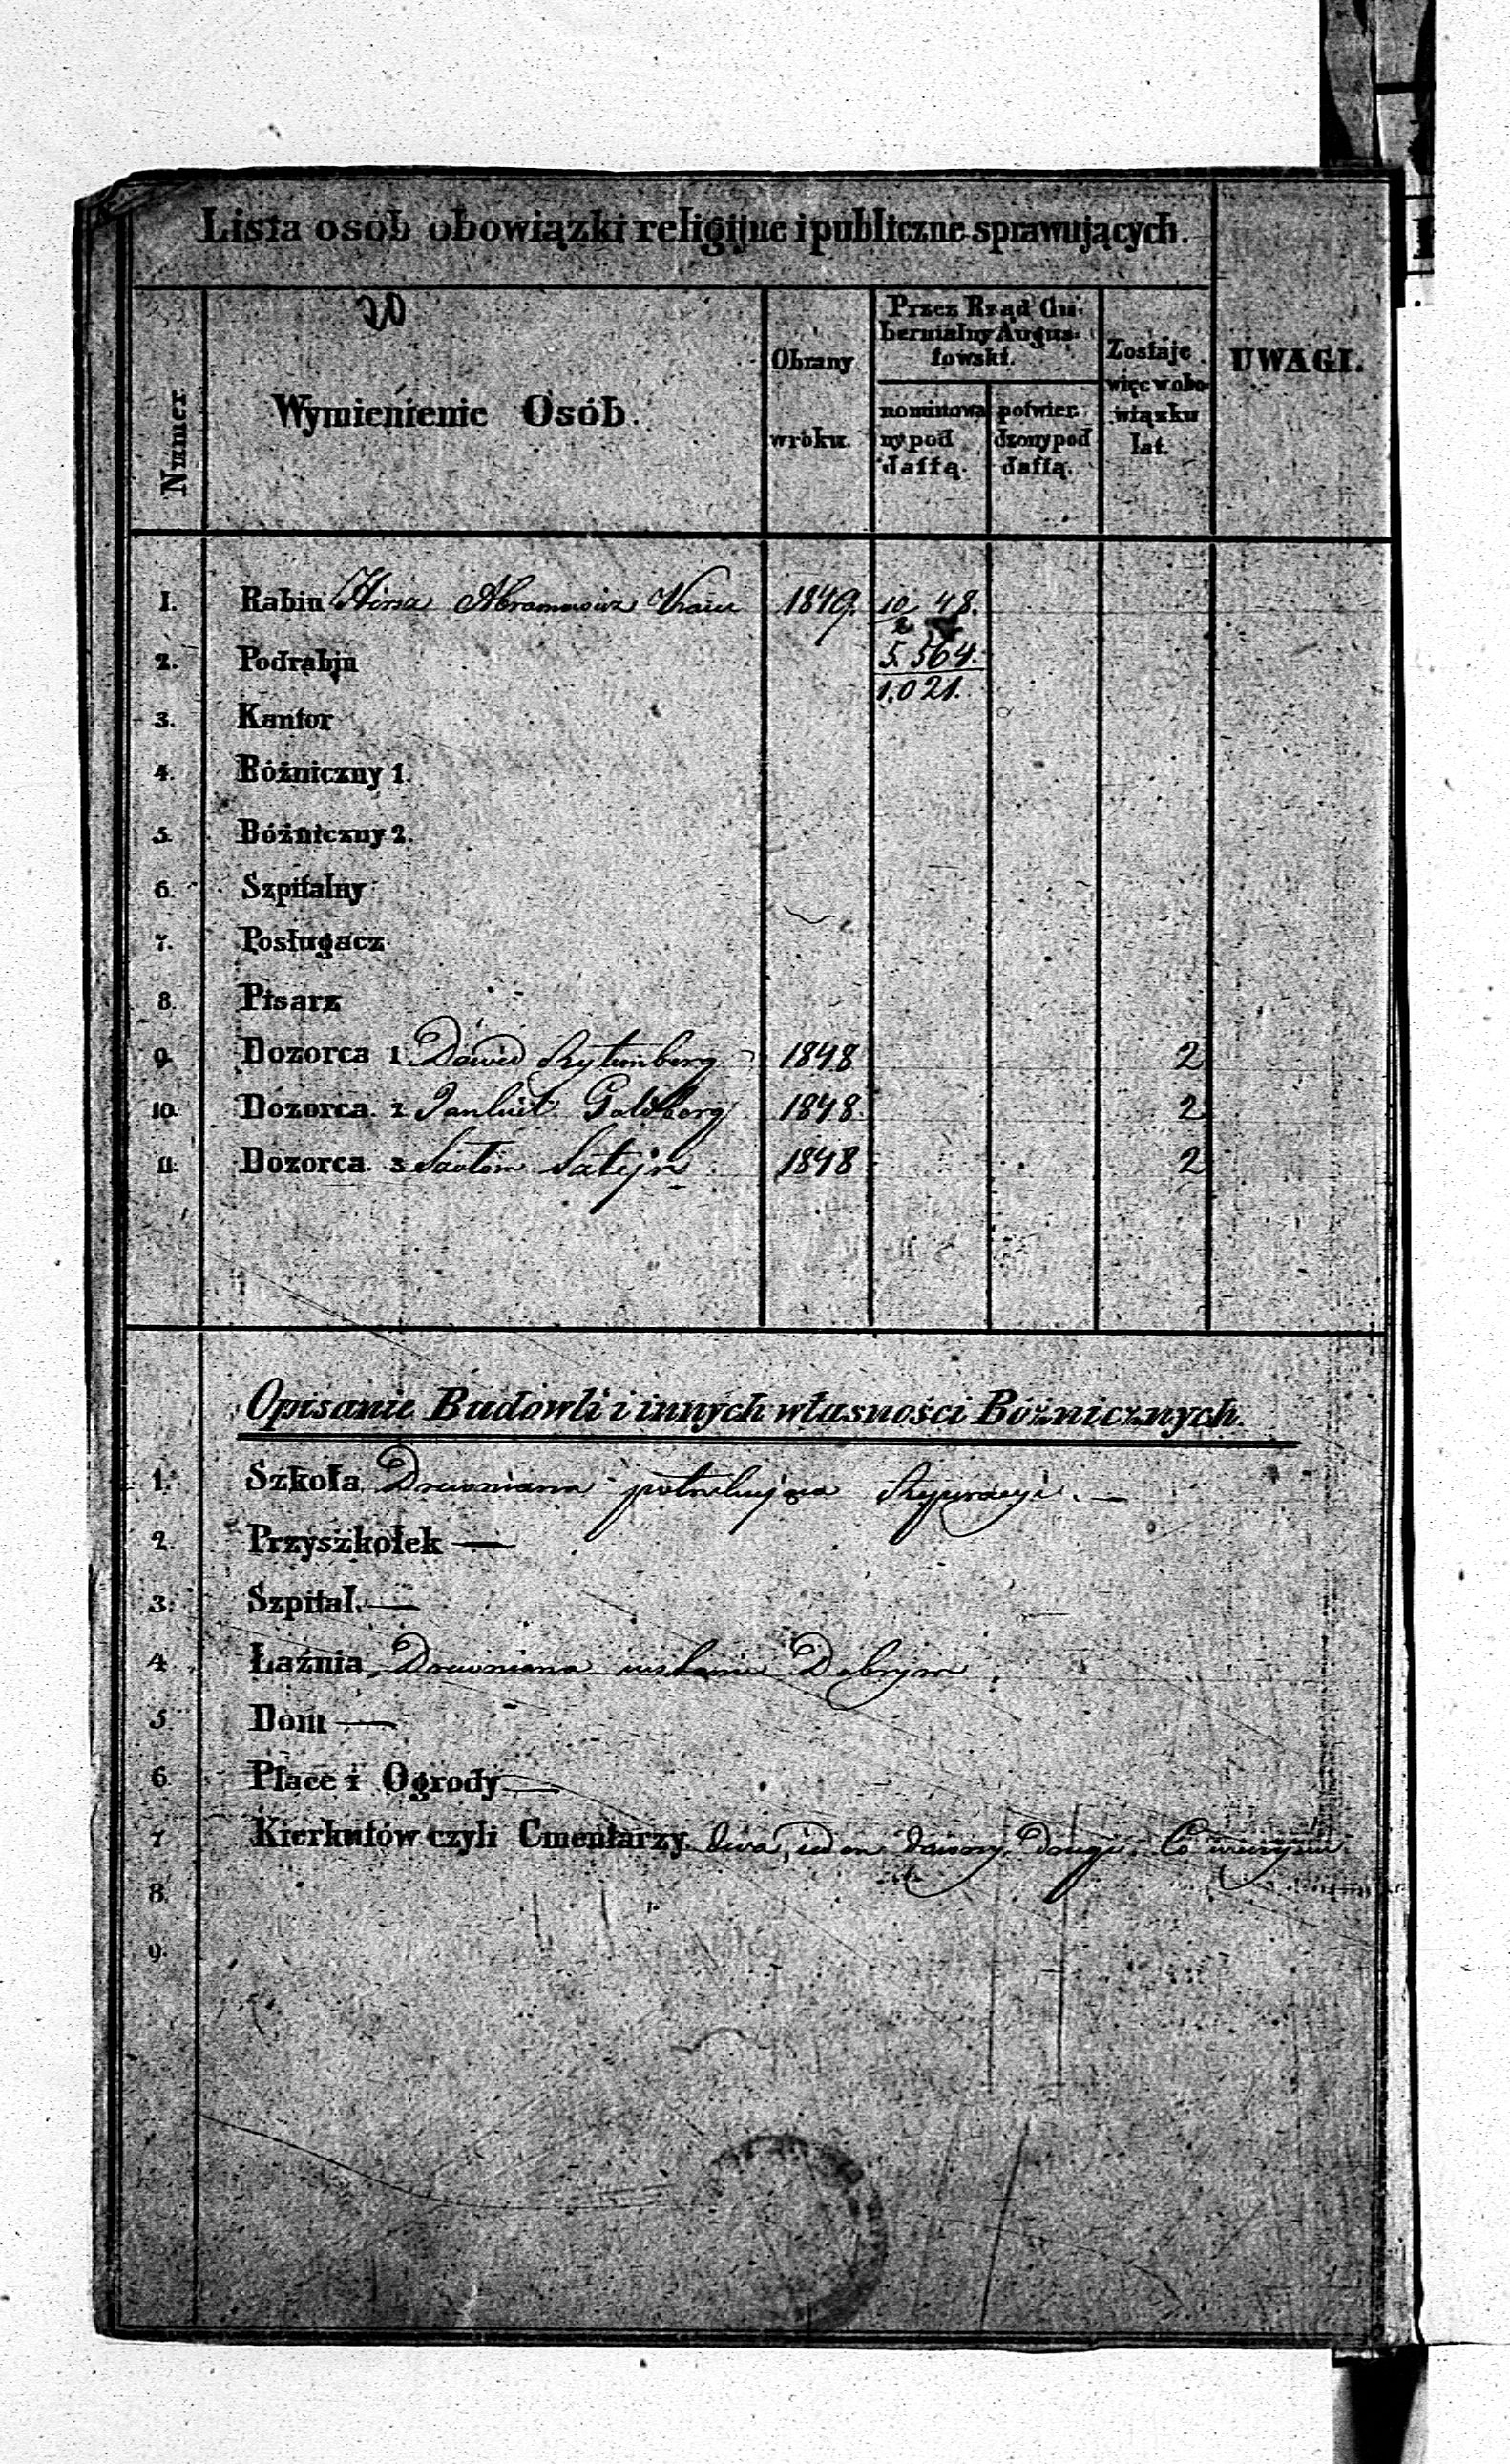 Lista osób obowiązki religijne i publiczne sprawujących.
20
Numer.
Wymienienie Osób.
Obrany
w roku.
Przez Rząd Gu-
bernialny Augus-
towski.
nominowa
ny pod
dattą.
potwier.
dzony pod
dattą.
Zostaje
więc w obo-
wiązku
lat.
UWAGI.
1. Rabin Hirsz Abramowicz 1849. 10/2 48.
5. 564.
2. Podrabin
1.021.
3. Kantor
4. Bóżniczny 1.
5. Bóżniczny 2.
6. Szpitalny
7. Posługacz
8. Pisarz
9. Dozorca 1 Dawid Rytemberg 1848 2
10. Dozorca 2 Goldberg 1848. 2
11. Dozorca 3 1848 2
Opisanie Budowli i innych własności Bóżnicznych.
1. Szkoła Drewniana potrzebująca Reperacyi. —
2. Przyszkołek —
3. Szpital. —
4. Łaźnia Drewniana w stanie Dobrym
5. Dom —
6. Place i Ogrody —
7. Kierkutów czyli Cmentarzy dwa, jeden dawny, drugi
8.
9.